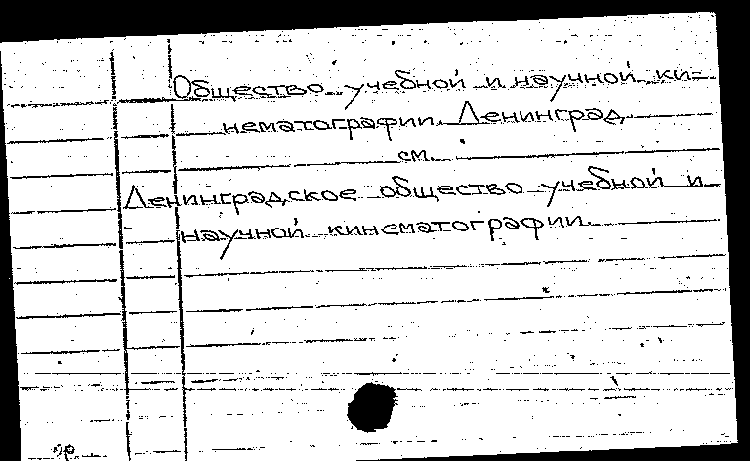 Общество учебной и научной ки-
нематографии. Ленинград
см.
Ленинградское общество учебной и
научной кинематографии.